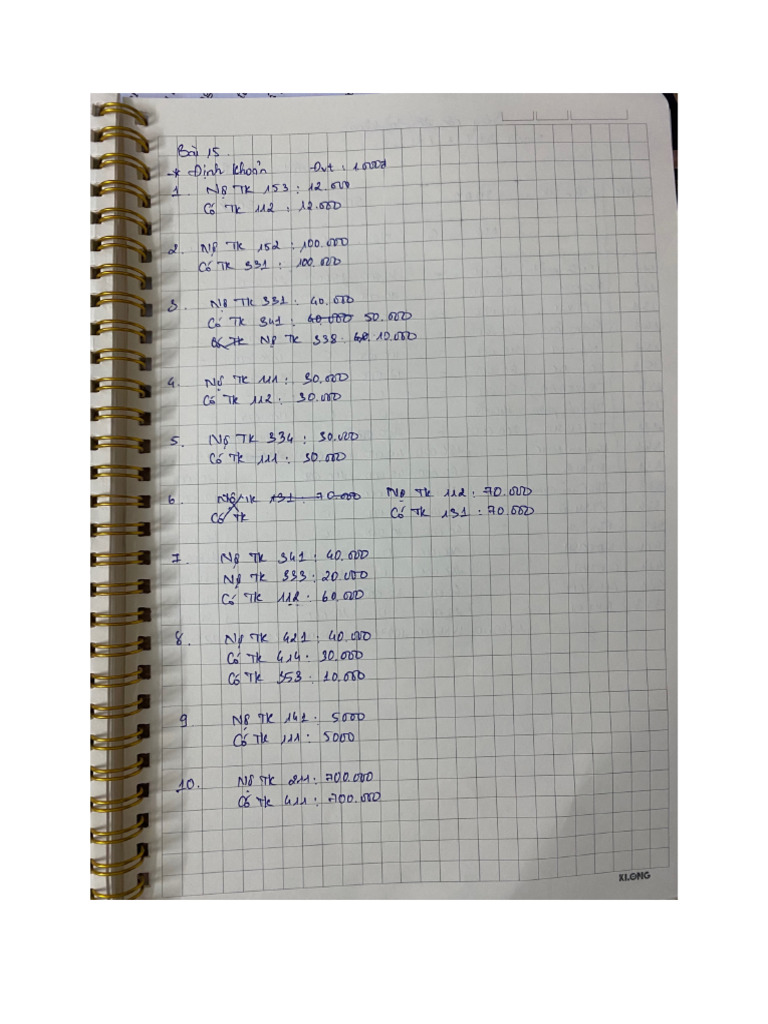 Bài 15
* Định khoản Đvt: 1000đ
1. Nợ TK 153: 12.000
Có TK 112: 12.000
2. Nợ TK 152: 100.000
Có TK 331: 100.000
3. Nợ TK 331: 40.000
Có TK 341: 40.000 50.000
Có TK Nợ TK 338: 10.000
4. Nợ TK 111: 30.000
Có TK 112: 30.000
5. Nợ TK 334: 30.000
Có TK 111: 30.000
6. Nợ TK 131: 70.000 Nợ TK 112: 70.000
Có TK Có TK 131: 70.000
7. Nợ TK 341: 40.000
Nợ TK 333: 20.000
Có TK 112: 60.000
8. Nợ TK 421: 40.000
Có TK 414: 30.000
Có TK 353: 10.000
9 Nợ TK 141: 5000
Có TK 111: 5000
10. Nợ TK 211: 700.000
Có TK 411: 700.000
KLONG